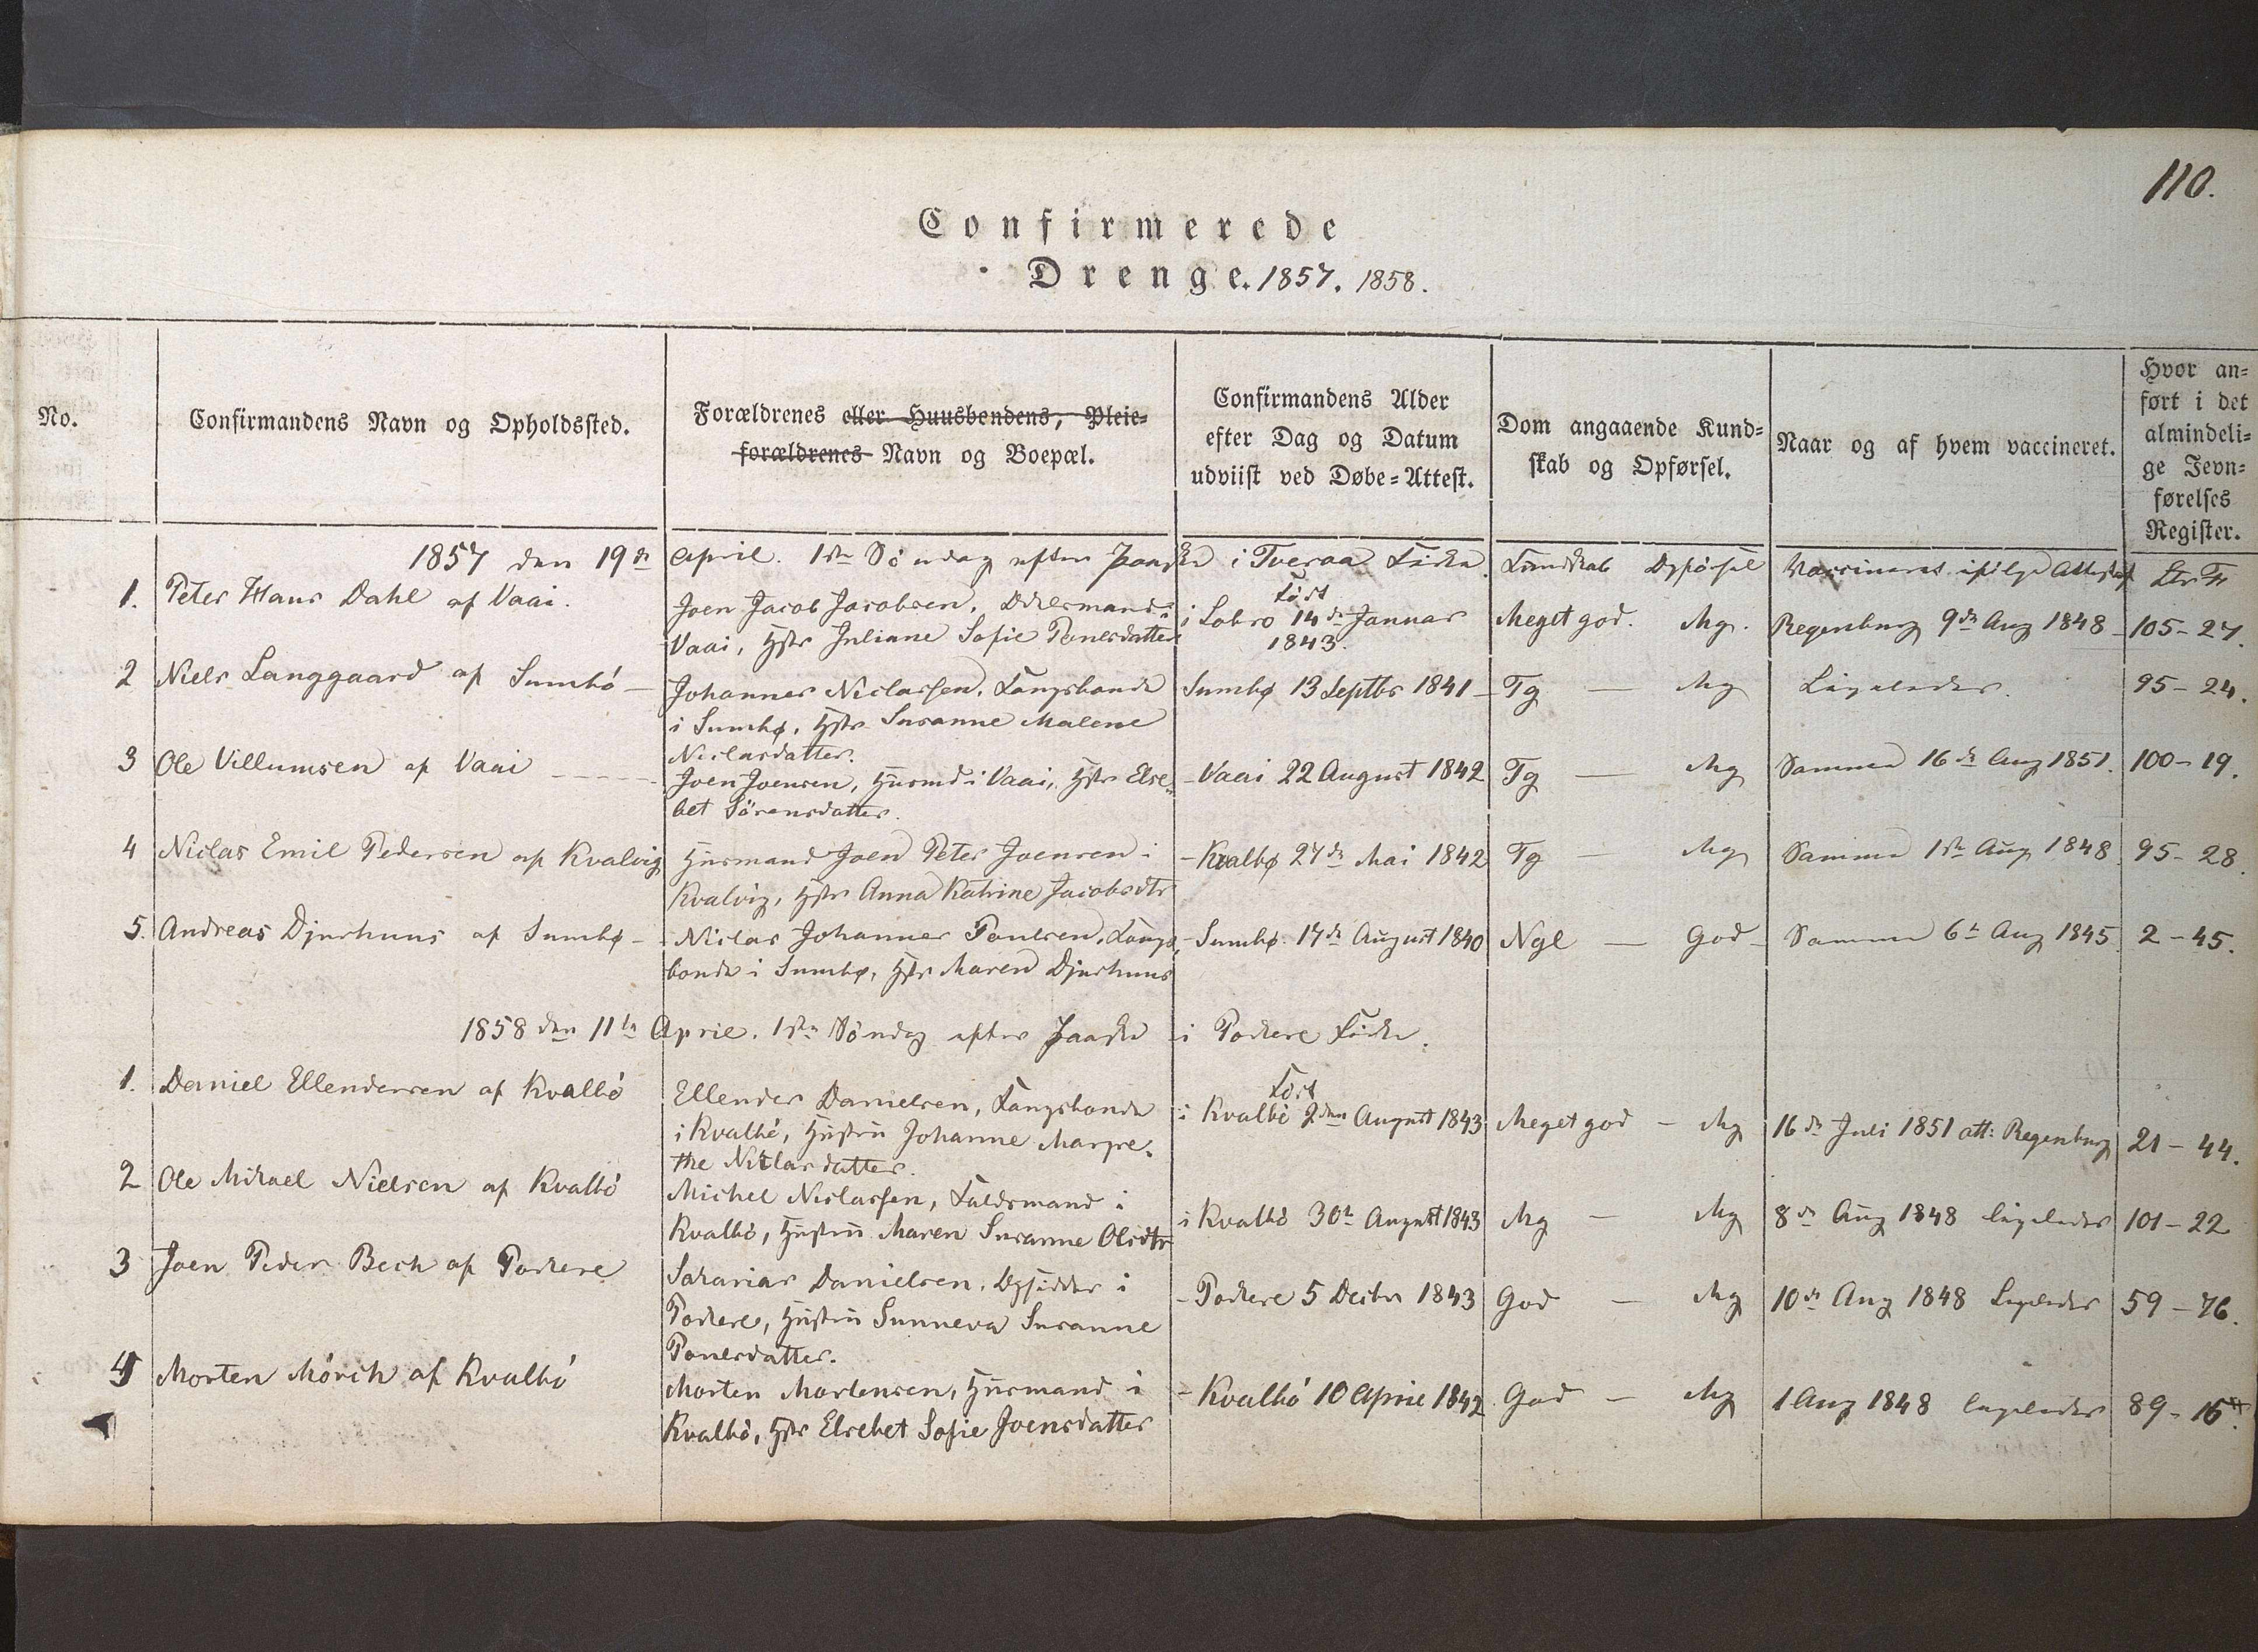 110.
Confirmerede
Drenge. 1857. 1858.
No.
Confirmandens Navn og Opholdssted.
Forældrenes eller Huusbondens, Pleie-
forældrenes Navn og Boepæl.
Confirmandens Alder
efter Dag og Datum
udviist ved Døbe-Attest.
Dom angaaende Kund-
skab og Opførsel.
Naar og af hvem vaccineret.
Hvor an-
ført i det
almindeli-
ge Jevn-
førelses
Register.
1857 den 19de April. 1ste Söndag efter Paaske i Tveraa Kirke. Kundskab Opförsel Vaccineret ifölge Attest af
1. Peter Hans Dahl af Vaai.
Joen Jacob Jacobsen, i
Vaai, Hstr Juliane Sofie Poulsdatter
Födt
i Lobro 14de Januar
1843.
Meget god. Mg.
Regenburg 9de Aug 1848 -
105 - 27.
2 Niels Langgaard af Sumbö -
Johannes Niclassen, Kongsbonde
i Sumbø, Hstr Susanne Malene
Niclasdatter.
Sumbø 13 Septbr 1841 -
Tg - Mg
Ligeledes.
95 - 24.
3 Ole Villumsen af Vaai - - - -
Joen Joensen, Husmd i Vaai, Hstr Else-
bet Sörensdatter.
- Vaai 22 August 1842
Tg - Mg
Samme 16de Aug 1851.
100 - 19.
4 Niclas Emil Pedersen af Kvalvig
Husmand Joen Peter Joensen i
Kvalvig, Hstr Anna Katrine Jacobsdtr
- Kvalbø 27de Mai 1842
Tg - Mg
Samme 1ste Aug 1848.
95 - 28.
5. Andreas Djurhuus af Sumbø -
- Niclas Johannes Poulsen, Kongs-
bonde i Sumbø, Hstr Maren Djurhuus
- Sumbø 17de August 1840
Ngl - God -
Samme 6te Aug 1845.
2 - 45.
1858 den 11te April. 1ste Söndag efter Paaske i Porkere Kirke.
1. Daniel Ellendersen af Kvalbö
Ellender Danielsen, Kongsbonde
i Kvalbö, Hustru Johanne Margre-
the Niclasdatter.
Födt
i Kvalbö 2den August 1843
Meget god - Mg
16de Juli 1851 att: Regenburg
21 - 44.
2 Ole Mikael Nielsen af Kvalbö
Michel Niclassen, i
Kvalbö, Hustru Maren Susanne Olsdtr
i Kvalbö 30te August 1843
Mg - Mg
8de Aug 1848 ligeledes
101 - 22
3 Joen Peder Bech af Porkere
Sakarias Danielsen, Opsidder i
Porkere, Hustru Sunneva Susanne
Poulsdatter.
- Porkere 5 Decbr 1843
God - Mg
10de Aug 1848 Ligeledes
59 - 76.
4 Morten Mörch af Kvalbö
Morten Mortensen, Husmand i
Kvalbö, Hstr Elsebet Sofie Joensdatter
- Kvalbö 10 April 1842
God - Mg
1 Aug 1848 ligeledes
89 - 15